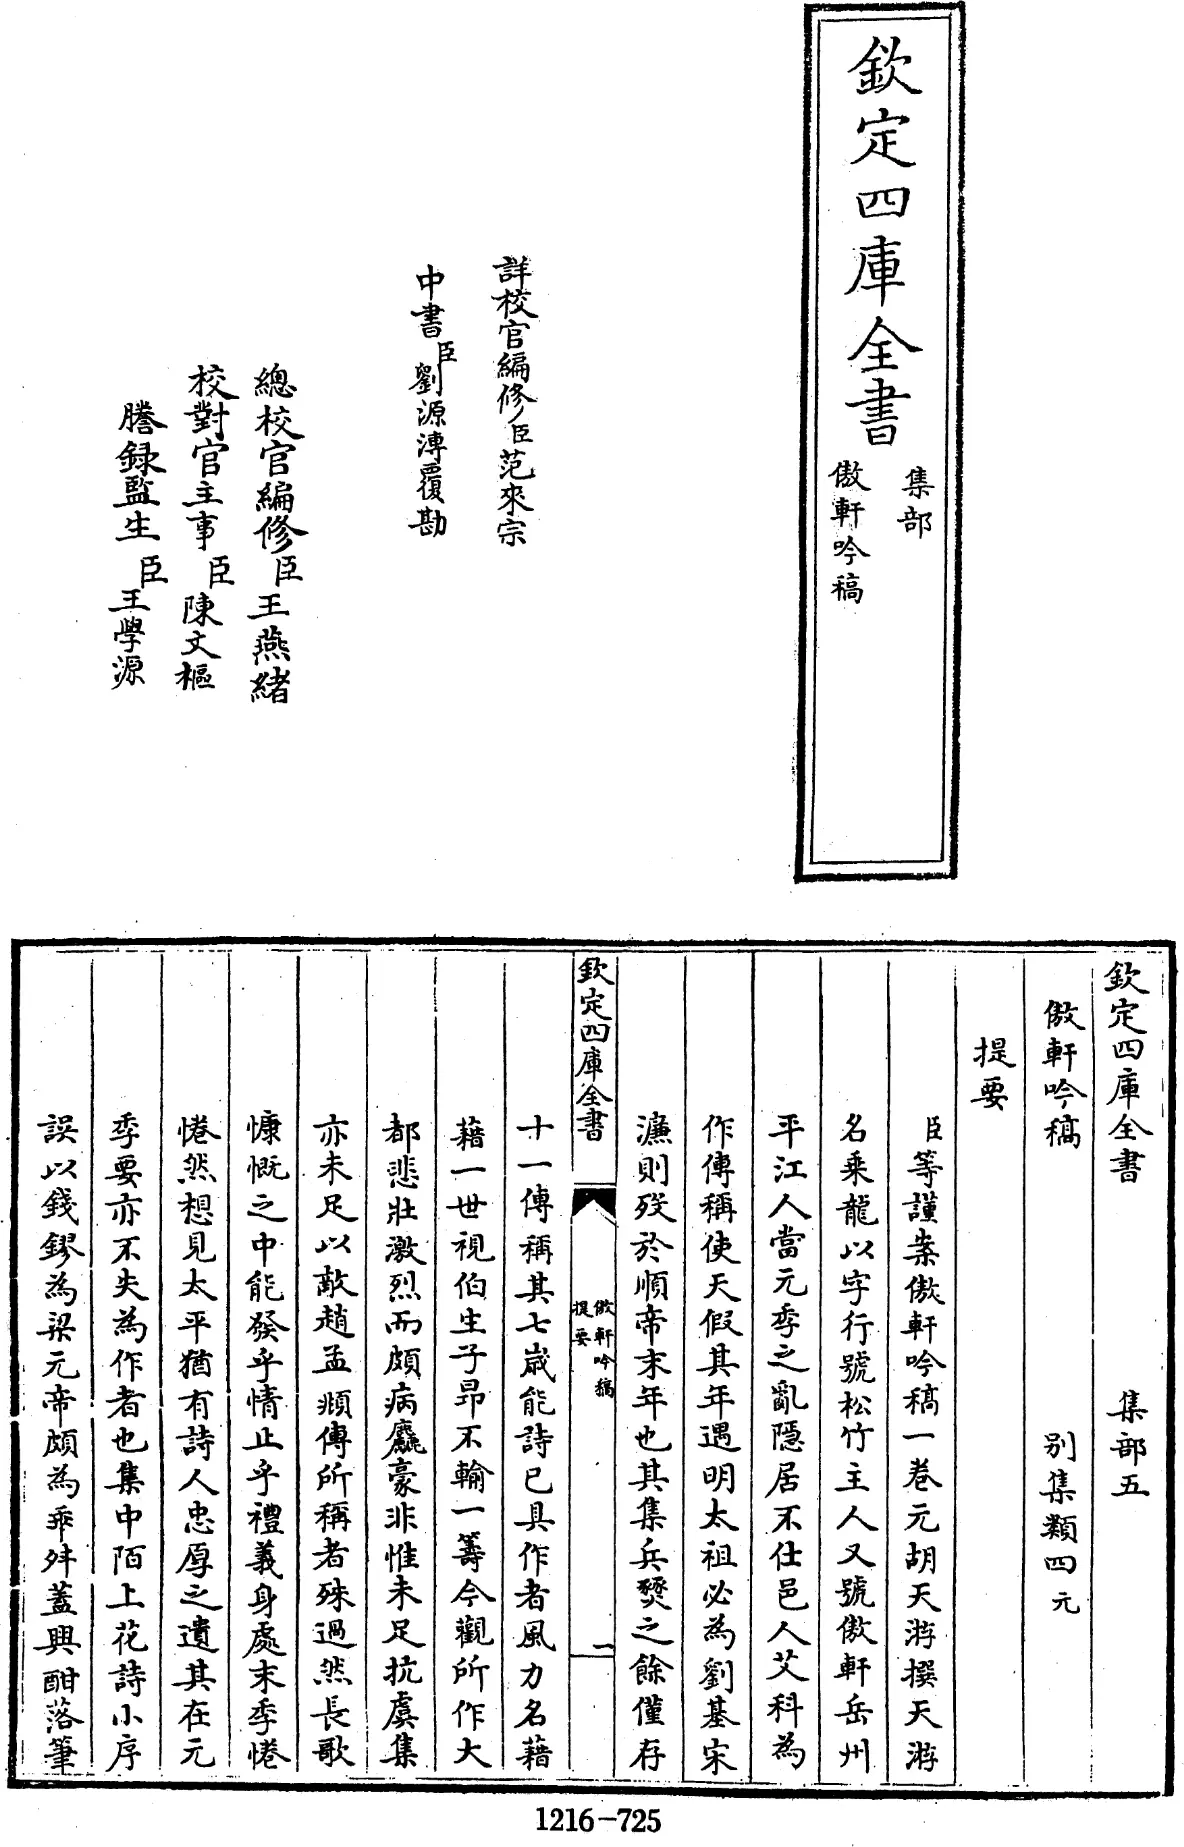 欽定四庫全書
集部
傲軒吟稿
詳校官編修臣范來宗
中書臣劉源溥覆勘
總校官編修臣王燕緒
校對官主事臣陳文樞
謄録監生臣王學源
欽定四庫全書　集部五
傲軒吟稿　别集類四元
提要
臣等謹案傲軒吟稿一卷元胡天游撰天游
名乗龍以字行號松竹主人又號傲軒岳州
平江人當元季之亂隠居不仕邑人艾科為
作傳稱使天假其年遇明太祖必為劉基宋
濂則殁於順帝末年也其集兵燹之餘僅存
欽定四庫全書
傲軒吟稿
提要
一
十一傳稱其七歲能詩已具作者風力名藉
藉一世視伯生子昂不輸一籌今觀所作大
都悲壯激烈而頗病麤豪非惟未足抗虞集
亦未足以敵趙孟頫傳所稱者殊過然長歌
慷慨之中能發乎情止乎禮義身處末季惓
惓然想見太平猶有詩人忠厚之遺其在元
季要亦不失為作者也集中陌上花詩小序
誤以錢鏐為梁元帝頗為乖舛葢興酣落筆
1216-725